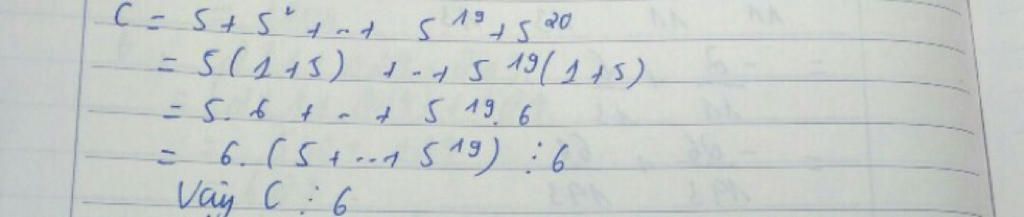 C = 5 + 5² + .. + 5¹⁹ + 5²⁰
= 5(1+5) + .. + 5¹⁹(1+5)
= 5.6 + .. + 5¹⁹.6
= 6.(5 + ... + 5¹⁹) ⋮ 6
Vậy C ⋮ 6